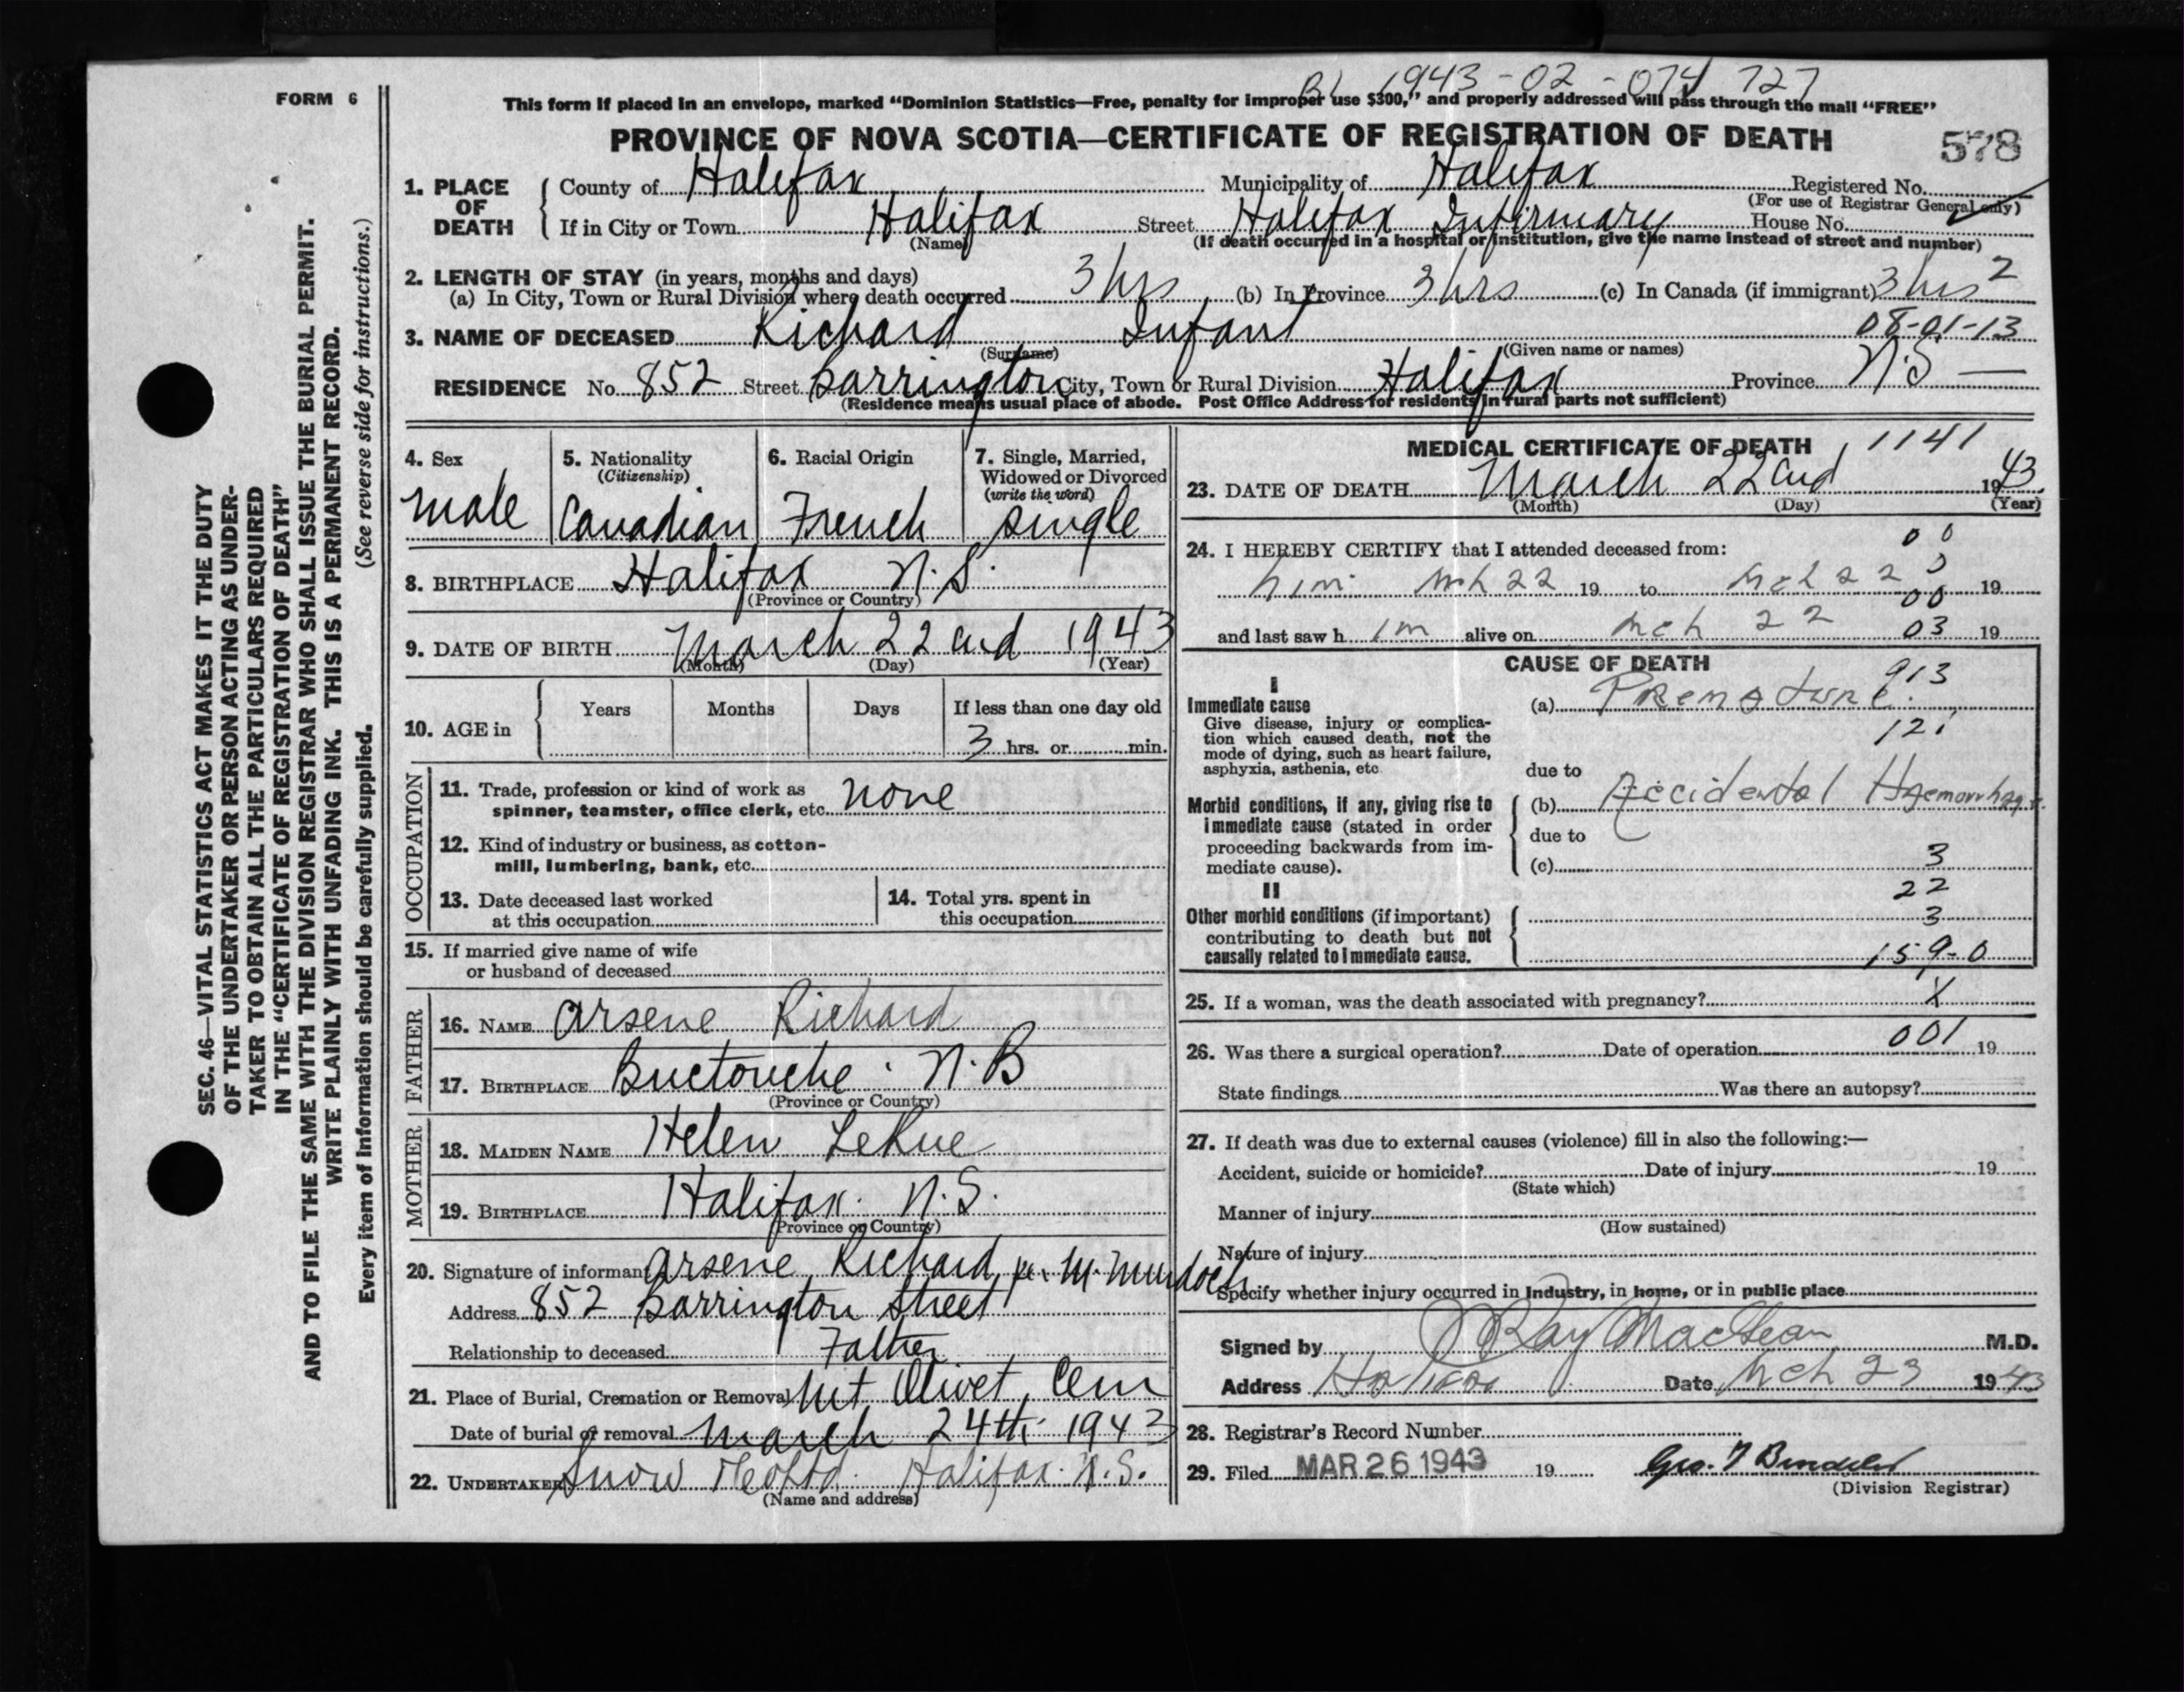 BL 1943-02-074727
FORM 6
This form if placed in an envelope, marked “Dominion Statistics—Free, penalty for improper use $300,” and properly addressed will pass through the mail “FREE”
PROVINCE OF NOVA SCOTIA—CERTIFICATE OF REGISTRATION OF DEATH
578
1. PLACE OF DEATH
County of Halifax Municipality of Halifax Registered No.
(For use of Registrar General only)
If in City or Town Halifax Street Halifax Infirmary House No.
(Name) (If death occurred in a hospital or institution, give the name instead of street and number)
2. LENGTH OF STAY (in years, months and days) 2
(a) In City, Town or Rural Division where death occurred 3 hrs (b) In Province 3 hrs (c) In Canada (if immigrant) 3 hrs
08-01-13
3. NAME OF DECEASED Richard Infant
(Surname) (Given name or names)
RESIDENCE No. 852 Street Barrington City, Town or Rural Division Halifax Province N.S —
(Residence means usual place of abode. Post Office Address for residents in rural parts not sufficient)
4. Sex
male
5. Nationality
(Citizenship)
Canadian
6. Racial Origin
French
7. Single, Married,
Widowed or Divorced
(write the word)
single
8. BIRTHPLACE Halifax N.S.
(Province or Country)
9. DATE OF BIRTH March 22nd 1943
(Month) (Day) (Year)
10. AGE in
Years Months Days If less than one day old
3 hrs. or min.
OCCUPATION
11. Trade, profession or kind of work as
spinner, teamster, office clerk, etc. none
12. Kind of industry or business, as cotton-
mill, lumbering, bank, etc.
13. Date deceased last worked
at this occupation
14. Total yrs. spent in
this occupation
15. If married give name of wife
or husband of deceased
FATHER
16. NAME Arsene Richard
17. BIRTHPLACE Buctouche N.B
(Province or Country)
MOTHER
18. MAIDEN NAME Helen LeRue
19. BIRTHPLACE Halifax N.S.
(Province or Country)
20. Signature of informant Arsene Richard per M. Murdoch
Address 852 Barrington Street
Relationship to deceased Father
21. Place of Burial, Cremation or Removal Mt Olivet Cem
Date of burial or removal March 24th 1943
22. UNDERTAKER Snow & Co Ltd. Halifax. N.S.
(Name and address)
MEDICAL CERTIFICATE OF DEATH 1141
23. DATE OF DEATH March 22nd 1943
(Month) (Day) (Year)
24. I HEREBY CERTIFY that I attended deceased from: 00
him Mch 22 19 to Mch 22 19
00
and last saw him alive on Mch 22 03 19
CAUSE OF DEATH
913
I
Immediate cause
Give disease, injury or complica-
tion which caused death, not the
mode of dying, such as heart failure,
asphyxia, asthenia, etc
(a) Premature.
121
due to
Morbid conditions, if any, giving rise to
immediate cause (stated in order
proceeding backwards from im-
mediate cause).
(b) Accidental Haemorrhage
due to
(c) 3
22
II
Other morbid conditions (if important)
contributing to death but not
causally related to immediate cause.
3
159-0
25. If a woman, was the death associated with pregnancy? X
001
26. Was there a surgical operation? Date of operation 19
State findings Was there an autopsy?
27. If death was due to external causes (violence) fill in also the following:—
Accident, suicide or homicide? Date of injury 19
(State which)
Manner of injury
(How sustained)
Nature of injury
Specify whether injury occurred in Industry, in home, or in public place
Signed by Ray MacLean M.D.
Address Halifax Date Mch 23 1943
28. Registrar's Record Number
29. Filed MAR 26 1943 19 Geo.
(Division Registrar)
SEC. 46—VITAL STATISTICS ACT MAKES IT THE DUTY
OF THE UNDERTAKER OR PERSON ACTING AS UNDER-
TAKER TO OBTAIN ALL THE PARTICULARS REQUIRED
IN THE “CERTIFICATE OF REGISTRATION OF DEATH”
AND TO FILE THE SAME WITH THE DIVISION REGISTRAR WHO SHALL ISSUE THE BURIAL PERMIT.
WRITE PLAINLY WITH UNFADING INK. THIS IS A PERMANENT RECORD.
Every item of information should be carefully supplied. (See reverse side for instructions.)